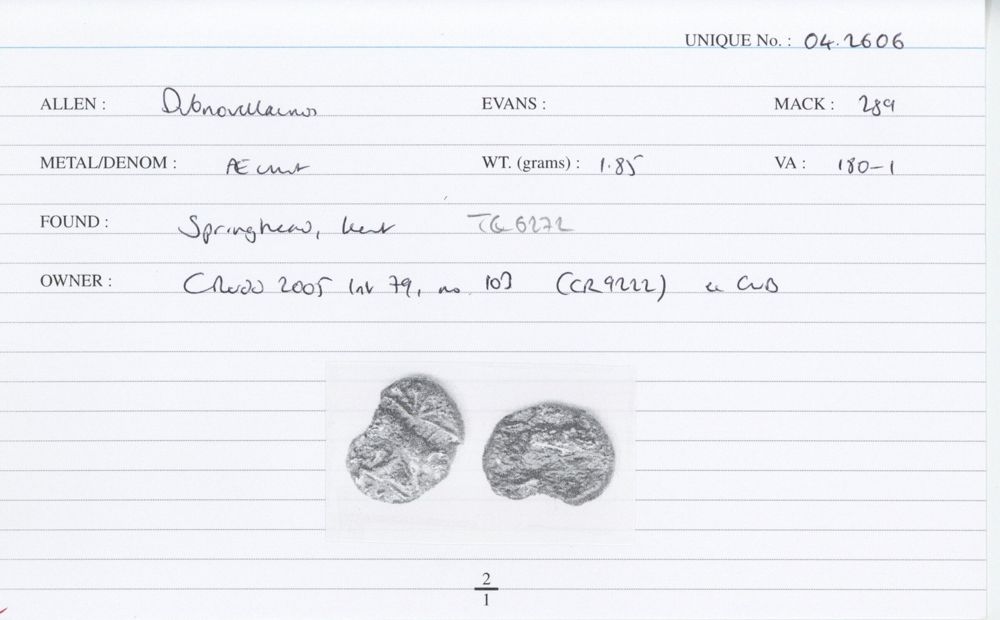 UNIQUE No. : 04.2606
ALLEN : Dubnovellaunos EVANS : MACK : 289
METAL/DENOM : Æ unit WT. (grams) : 1.85 VA : 180-1
FOUND : Springhead, Kent TQ 6272
OWNER : CR 2005 list 79, no. 103 (CR9222) ex
2
1